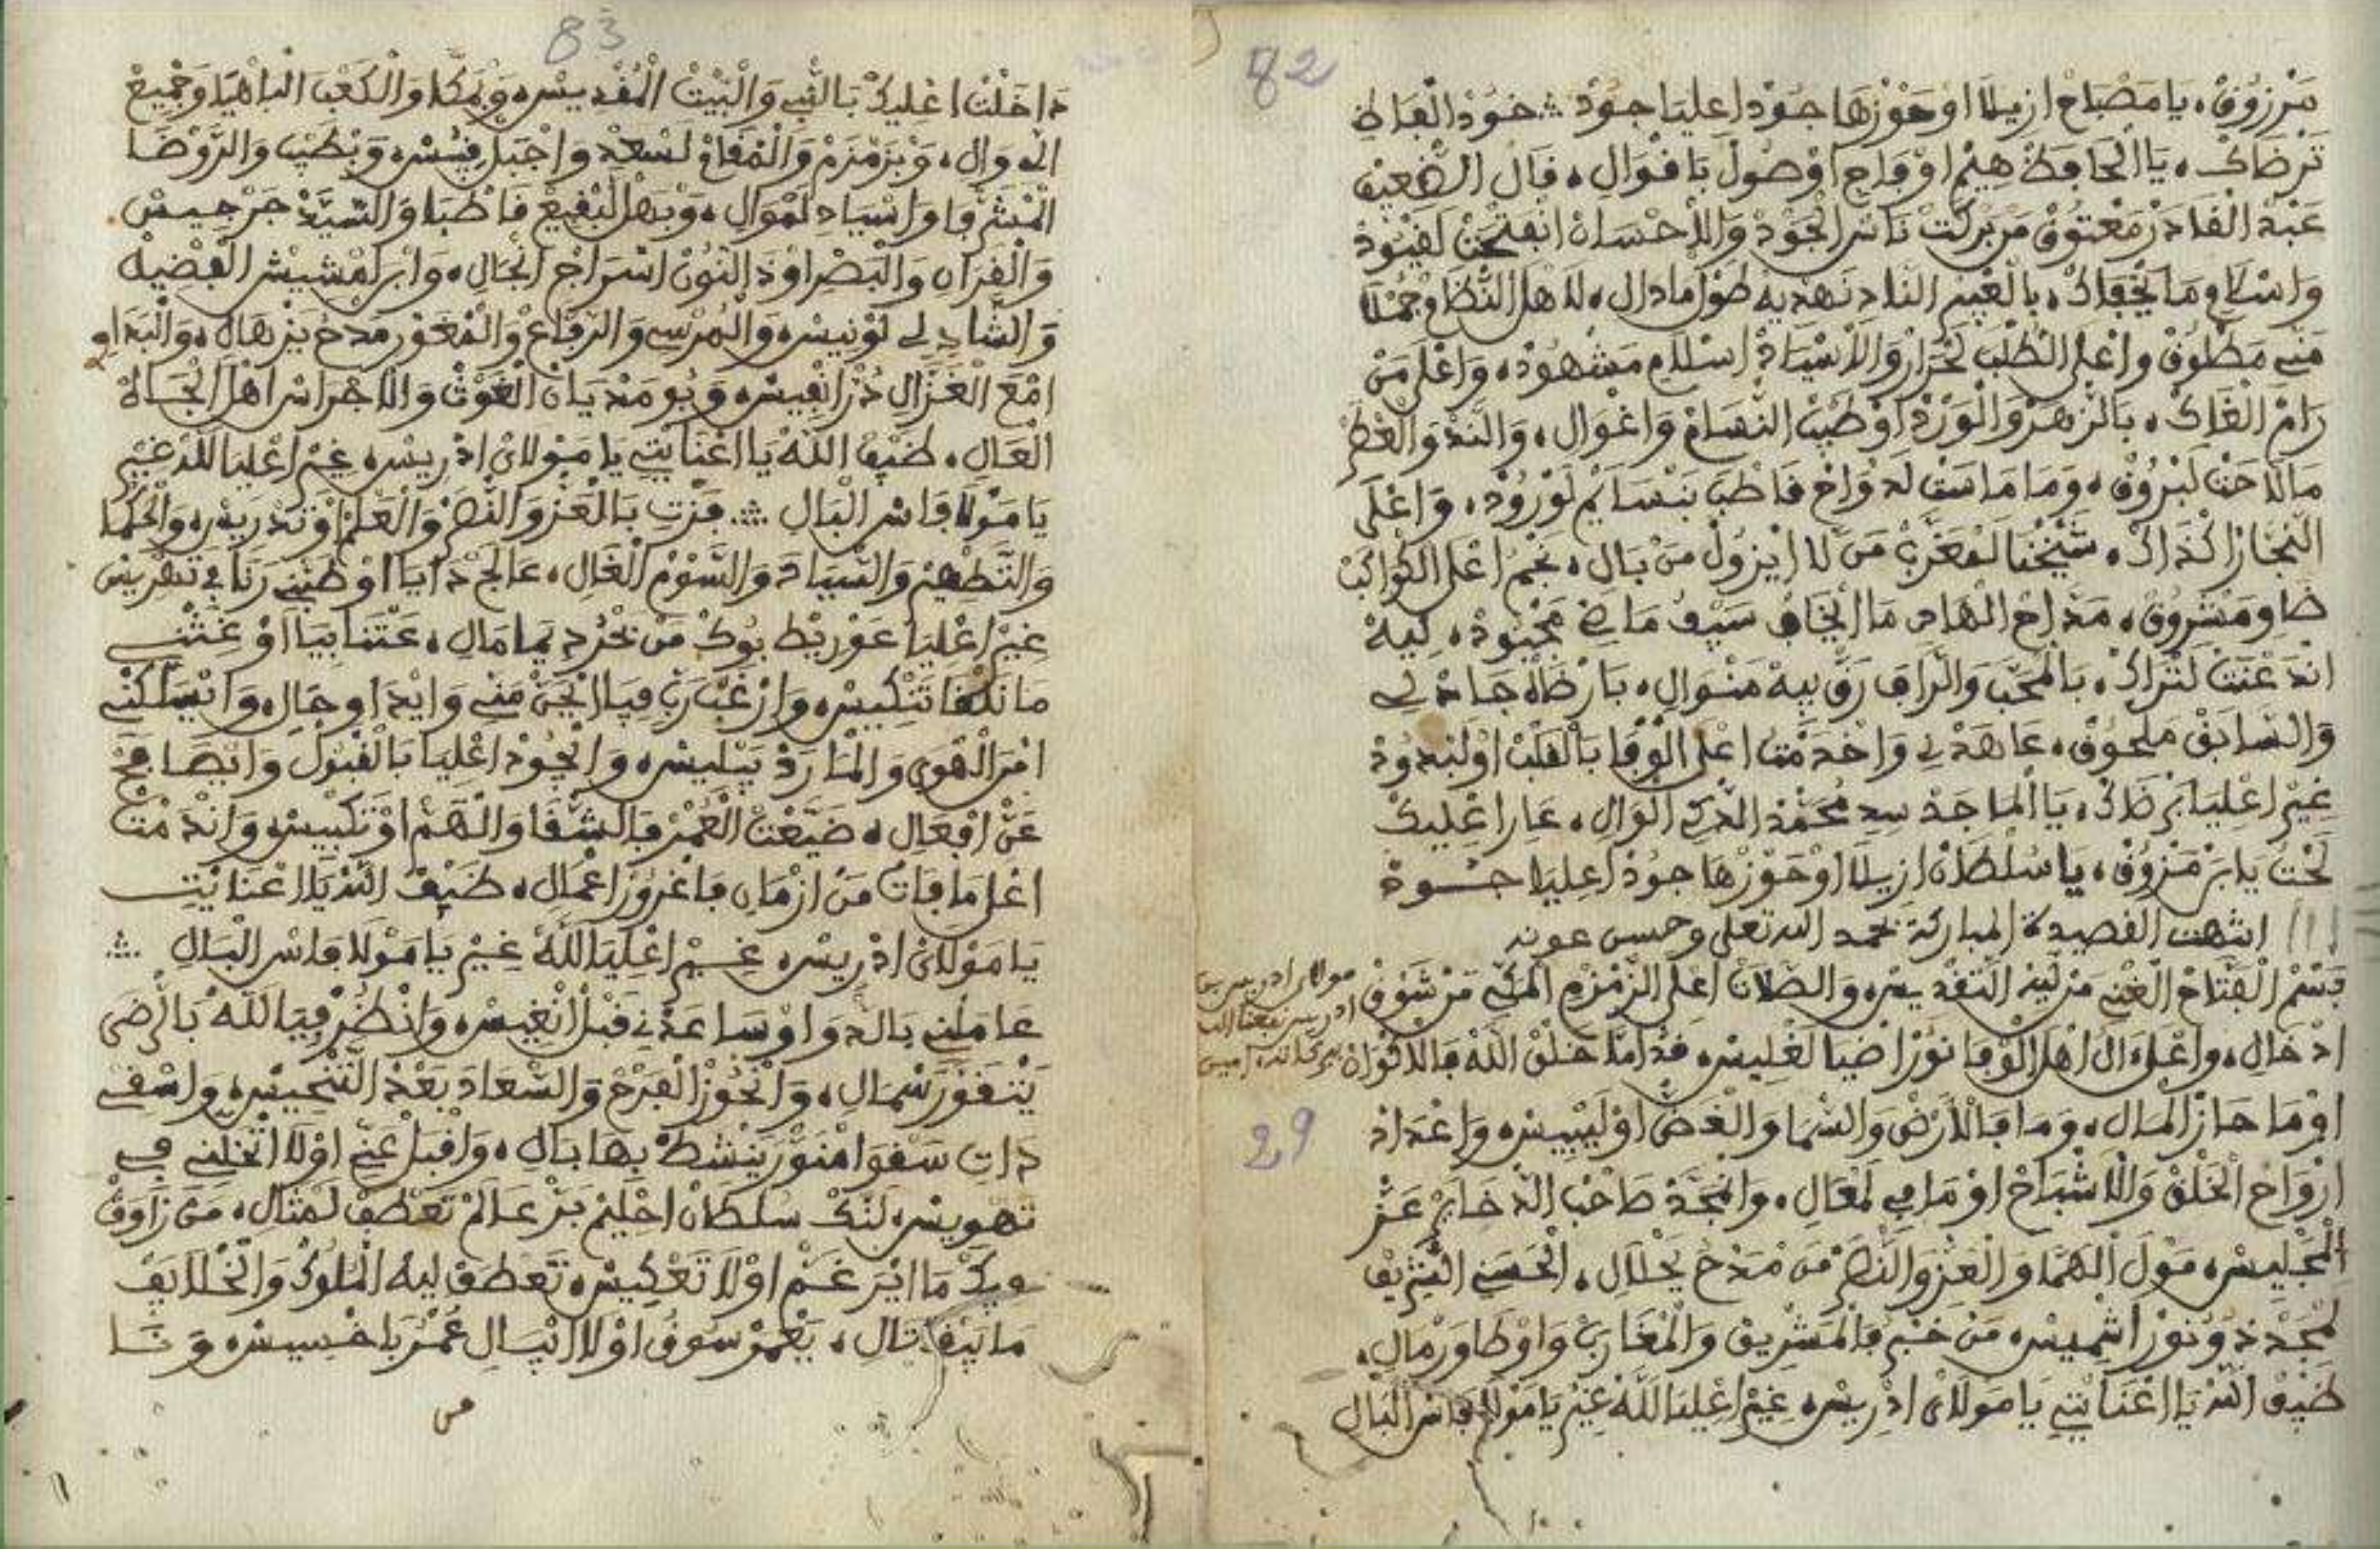 82
مَرْزُوقْ، يَا مَصْبَاحْ ازيلَا اوْحَوْزْهَا جُودْ اعليَا جُودْ ∴ خُودْ الْفَاظِ
تَرْضَاكْ، يَا الْحَافَظْ اوْصُولْ بَاقْوَالِ، قَالْ الضْعِيفْ
عَبْدْ الْقَادَرْ مَعْتُوقْ مَنْ بَرَكْتْ نَاسْ الْجُودْ وَالْاحْسَانْ
وَاسْلَامِ مَا يَخْفَاكْ، نَهْدِيهْ طُولْ مَادَالِ، لَاهْلْ النّْظَامْ جَمْلَا
مَنِّي مَطْلُوقْ وَاعْلَى الطُّلْبَ لَحْرَارْ وَالْاسْيَادْ اسْلَامِ مَشْهُودْ، وَاعْلَى مَنْ
رَامْ الْغَاكْ، بَالزَّهَرْ وَالْوَرْدْ اوْطَيْبْ النّْسَامْ وَاغْوَالِ، وَالنَّدْ وَالْعْطَرْ
مَالَاحَتْ لَبْرُوقْ، وَمَا مَاسَتْ لَدْوَاحْ فَاطْيَبْ بَنْسَايَمْ لَوْرُودْ، وَاعْلَى
النَّجَّارْ اكْذَاكْ، شَيْخْنَا لَمْغَرَّبْ مَنْ لَا ايْزُولْ مَنْ بَالِ، نَجْمْ اعْلَى الْكْوَاكَبْ
ضَاوِ مَشْرُوقْ، مَدَّاحْ الْهَادِ مَا ايْخَافْ سَيْفُ مَاضِي مَجْبُودْ، لِيهْ
انْدَعْتَتْ لَتْرَاكْ، بَالْمْحَبَّ وَالرَّافَ رَقّْ بِيهْ مَنْوَالِ، بَارْضَاهْ جَادْ لِي
وَالسَّابَقْ مَلْحُوقْ، عَاهَدْنِي وَاخْدَمْتْ اعْلَى الْوْفَا بَالْقَلْبْ اوْلَبْدُودْ
غِيرْ اعْلِيَا بَرْضَاكْ، يَا الْمَاجَدْ سِيدِ مُحَمَّدْ الْوَالِ، عَارَ اعْلِيكْ
لَحْتُ يَا بَنْ مَرْزُوقْ، يَا سُلْطَانْ ازيلَا اوْحَوْزْهَا جُودْ اعليَا جُودْ
انتهت القصيدة المباركة بحمد الله تعلى وحسن عونه
بَسْمْ الْفَتَّاحْ الْغْنِي مَنْ لِيهْ التَّقْدِيسْ، وَالصَّلَاةْ اعْلَى الزَّمْزَمِ الْمَكِّي مَنْ شَوْقُ
مولاي ادريس بن
ادريس نفعنا الله
ببركاته امين
ادْخَالِ، وَاعْلَى الْ اهْلْ الْوْفَا نُورْ اضْيَا لَغْلِيسْ، قَدّْ امَّا خَلَقْ اللَّهْ فَالَاكْوَانْ
اوْمَا حَازْ الْمَالِ، وَمَا فَالْارْضْ وَالسّْمَا وَالْغَضّْ اوْلَيْبِيسْ، وَاعْدَادْ
29
ارْوَاحْ الْخَلْقْ وَالْاشْبَاحْ اوْمَا فِي لَمْعَالِ، وَانْمَجَّدْ صَاحْبْ الذّْخَايَرْ عَزّْ
الْجْلِيسْ، مُولْ الْهَمَّا وَالْعَزّْ وَالنّْصَرْ مَنْ مَدْحُ يَحْلَالِ، الْحَسَنِي الشّْرِيفْ
لَمْجَدْ ذُو نُورْ اشْمِيسْ، مَنْ خَبْرُ فَالْمَشْرِيقْ وَالْمْغَارَبْ وَاوْطَا وَرْمَالِ،
ضَيْفْ اللَّهْ يَا اعْنَايْتِي يَا مَوْلَايْ ادْرِيسْ، غِيرْ اعْلِيَا لَلَّهْ غِيرْ يَا مَوْلَا فَاسْ الْبَالِ
83
دَاخَلْتْ اعْلِيكْ بَالنّْبِي وَالْبَيْتْ الْمُقْدِيسْ، وَبْمَكَّا وَالْكَعْبَ الْبَاهْيَا وَجْمِيعْ
الْ وَالِ، وَبْزَمْزَمْ وَالْمْقَامْ لَسْعَدْ وَاجْبَلْ قِيسْ، وَبْطَيْبَ وَالرَّوْضَا
الْمْشَرْفَا وَاسْيَادْ لَمْوَالِ، وَبَهْلْ لَبْقِيعْ قَاطْبَا وَالسَّيَّدْ جَرْجِيسْ
وَالْقَرَانِ وَالْبَصْرِ اوْذَا النُّونْ اسْرَاجْ انْجَالِ، وَابْنْ امْشِيشْ الْفْضِيلْ
وَالشَّادِلِي تُونِيسْ، وَالْمُرْسِي وَالرّْفَاعْ وَالْمَغْوَرْ مَدْحُ يَزْهَالِ، وَالْبَدَاوِ
امْعَ الْغَزَّالِ دُرّْ انْفِيسْ، وَبُومَدْيَانْ الْغَوْثْ وَالْاجْرَاسْ اهْلْ الْجَاهْ
الْعَالِ، ضَيْفْ اللَّهْ يَا اعْنَايْتِي يَا مَوْلَايْ ادْرِيسْ، غِيرْ اعْلِيَا لَلَّهْ غِيرْ
يَا مَوْلَا فَاسْ الْبَالِ ∴ فَزْتِ بَالْعَزّْ وَالنّْصَرْ وَالْعَلْمْ اوْتَدْرِيسْ، وَالْحَكْمَا
وَالتَّطْهِيرْ وَالسّْيَادَ وَالسَّوْمْ الْغَالِ، عَالَجْ دَايَا اوْطَبّْنِي رَانِي تَهْرِيسْ
غِيرْ اعْلِيَا عَوْرِيطْ بُوكْ مَنْ نَحْرُدِ يَامَالِ، عَتْنَا بِيَا اوْغَثْنِي
مَا نَلْقَا تَنْكِيسْ، وَارْغَبْ رَبِّ فِيَا ايْحَنّْ مَنِّي وَايْدَاوِ حَالِ، وَانْسَلَّكْنِي
امْرْ الْهْوَى وَالْمَارَدْ يَبْلِيسْ، وَانْجُودْ اعْلِيَا بَالْقْبُولْ وَايْصَافَحْ
عَنْ افْعَالِ، ضَيَّعْتْ الْعْمَرْ فَالشّْقَا وَالْهَمّْ اوْتَكْبِيسْ، وَانْدَمْتْ
اعْلَى مَا فَاتْ مَنْ ازْمَانِ فَاغْرُورْ اعْمَالِ، ضَيْفْ اللَّهْ يَا اعْنَايْتِي
يَا مَوْلَايْ ادْرِيسْ، غِيرْ اعْلِيَا لَلَّهْ غِيرْ يَا مَوْلَا فَاسْ الْبَالِ ∴
عَامَلْنِي بَالدّْوَا اوْسَاعَدْنِي قَبْلْ انْغِيسْ، وَانْظُرْ فِيَا لَلَّهْ بَالرّْضَى
يَتْقَوَّرْ شْمَالِ، وَانْحُوزْ الْفَرْحْ وَالسّْعَادَ بَعْدْ التَّنْحِيسْ، وَاسْقِي
دَاتِ سَقْوَا امْنَوَّرْ يَنْشَطْ بِهَا بَالِ، وَاقْبَلْ عَنِّي اوْلَا اتْخَلِّينِي فِي
تَهْوِيسْ، لَنَّكْ سُلْطَانْ احْلِيمْ بَرّْ عَالَمْ تَعْطَفْ لَمْثَالِ، مَنْ زَاوَگْ
فِيكْ مَا ايْرَ غَمّْ اوْلَا تَعْكِيسْ، تَعْطَفْ لِيهْ الْمْلُوكْ وَالْخْلَايَقْ
مَا يَبْقَى تَالِ، يَعْمَرْ سُوقُ اوْلَا ايْسَالِ عُمْرُ بَاخْسِيسْ، وَنَا
من